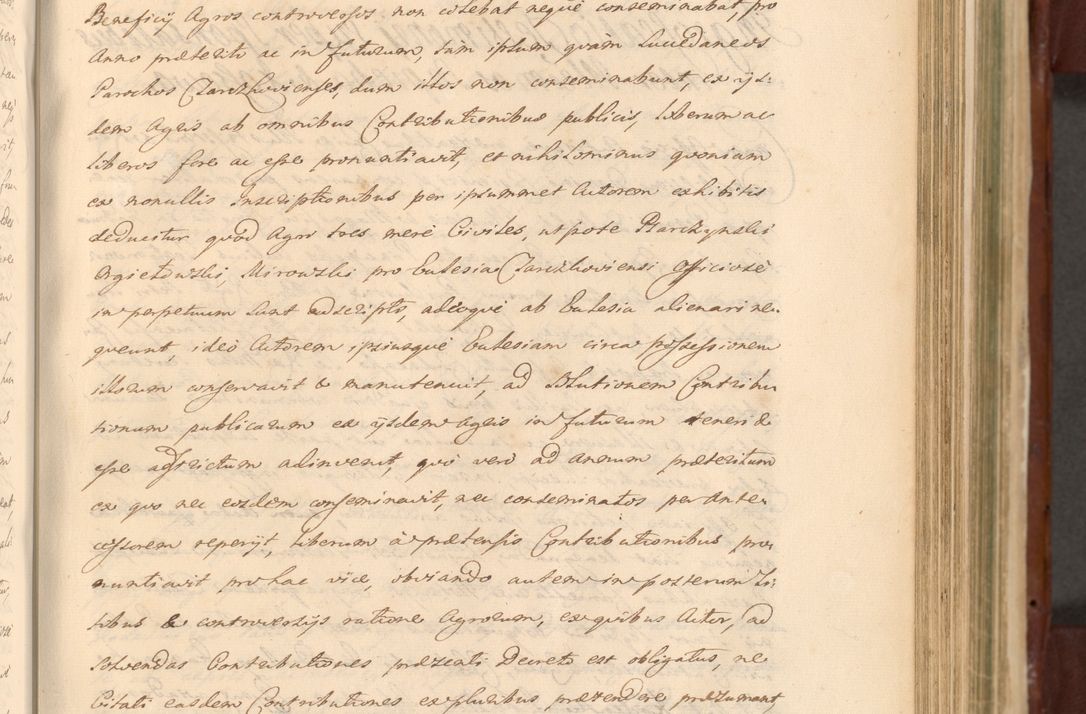 Beneficÿ Agros controversos non colebat nequè conseminabat, pro
Anno præterito ac in futurum, tàm ipsum quàm succedaneos
Parochos Czarczhovienses, dum illos non conseminabunt, ex ijs-
dem Agris ab omnibus Contributionibus publicis, liberum ac
liberos fore ac esse pronuntiavit, et nihilominus quoniam
ex nonullis Inscriptionibus per ipsummet Actorem exhibitis
deducitur quòd Agri hoes merè Civiles, ut pote
Mirowski pro Ecclesia Czarczhoviensi Officiosè
in perpetuum sunt adscripti, adeoquè ab Ecclesia alienari ne-
queunt, ideò Actorem ipsiusquè Ecclesiam circa possessionem
illorum conservavit & manutenuit, ad solutionem Contribu
tionum publicarum ex ijsdem Agris in futurum teneri &
esse adstrictum adinvenit, quò verò ad Annum præteritum
ex quo nec eosdem conseminavit, nec conseminatos per Ante-
cessorem reperijt, liberum à prætensis Contributionibus pro-
nuntiavit pro hac vice, obviando autem in posterum li-
tibus & controversijs ratione Agrorum, ex quibus Actor, ad
solvendas Contributiones præsenti Decreto est obligatus, ne
Citati easdem Contributiones ex pluribus prætendere præsumant,